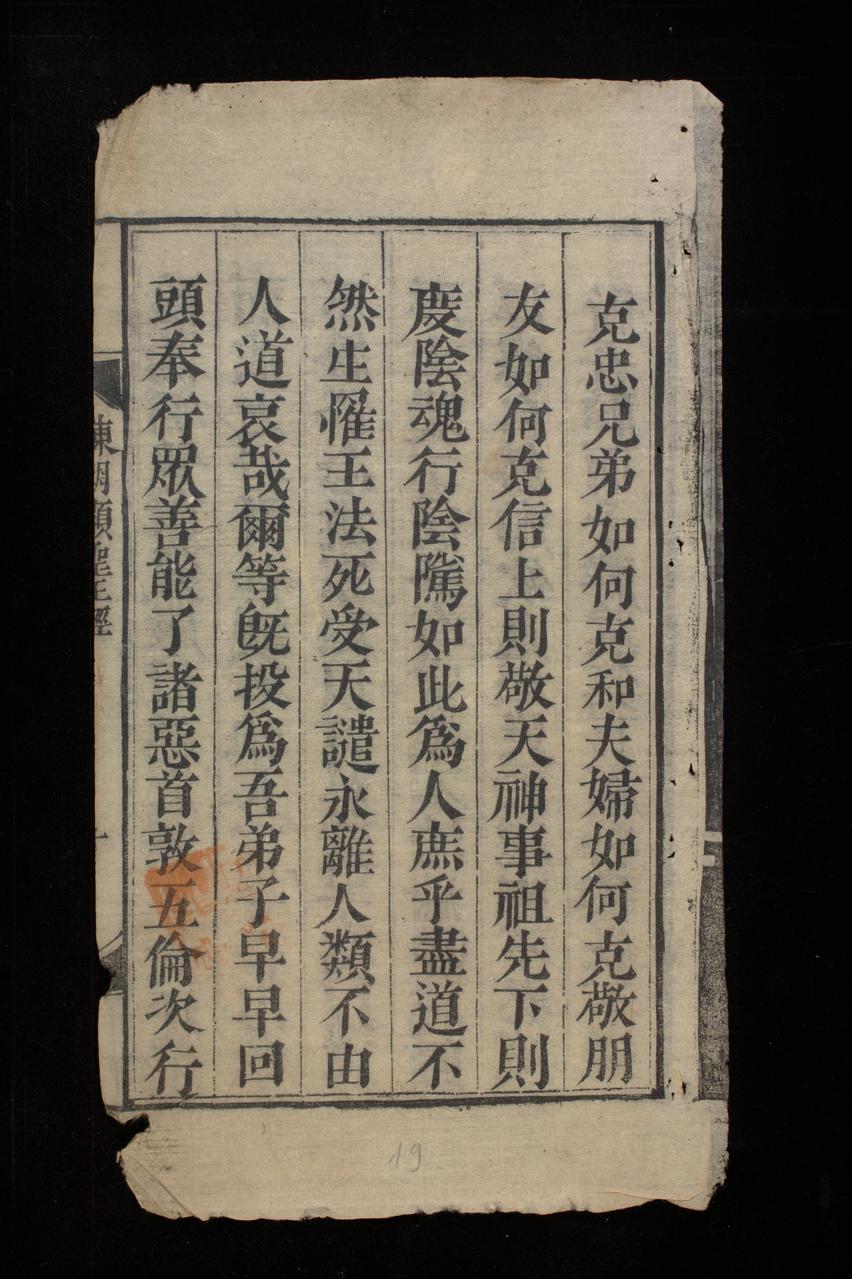 克忠兄弟如何克和夫婦如何克敬朋
友如何克信上則敬天神事祖先下則
度陰魂行陰隲如此爲人庶乎盡道不
然生罹王法死受天譴永離人類不由
人道哀哉爾等旣投爲吾弟子早早回
頭奉行眾善能了諸惡首敦五倫次行
明 聖經
19